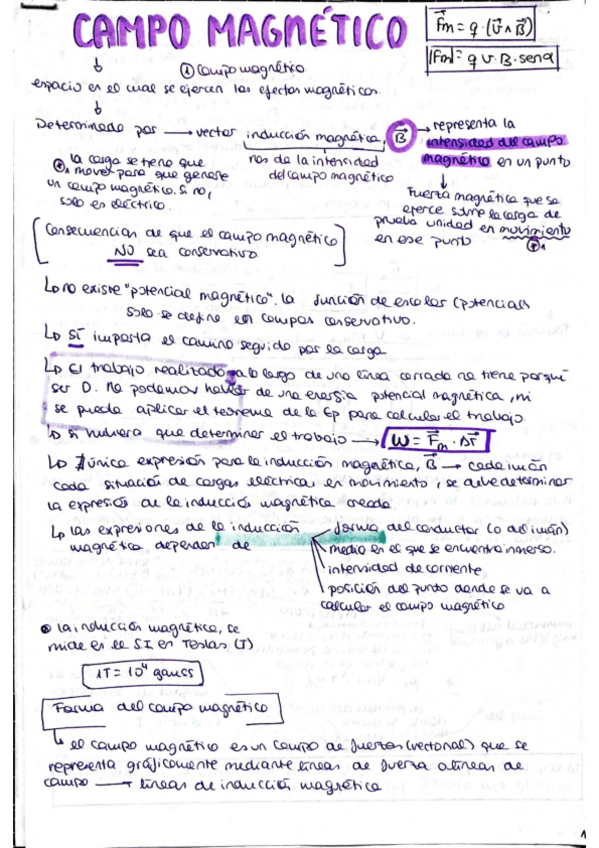 CAMPO MAGNÉTICO
F⃗m = q · (v⃗ ∧ B⃗)
|F⃗m| = q v · B · senα
① Campo magnético
espacio en el cual se ejercen los efectos magnéticos.
Determinado por → vector inducción magnética B⃗ → representa la
intensidad del campo
magnético en un punto
nos da la intensidad
del campo magnético
la carga se tiene que
mover para que genere
un campo magnético. Si no,
solo es eléctrico.
Fuerza magnética que se
ejerce sobre la carga de
prueba unidad en movimiento
en ese punto
[Consecuencias de que el campo magnético
NO sea conservativo]
↳ no existe "potencial magnético". la función de escalar (potencial)
solo se define en campos conservativo.
↳ SÍ importa el camino seguido por la carga
↳ El trabajo realizado a lo largo de una línea cerrada no tiene porqué
ser 0. No podemos hablar de una energía potencial magnética, ni
se puede aplicar el teorema de la Ep para calcular el trabajo.
↳ si hubiera que determinar el trabajo → W = F⃗m · Δr⃗
↳ ∄ única expresión para la inducción magnética, B⃗ → cada imán
cada situación de cargas eléctrica en movimiento, se debe determinar
la expresión de la inducción magnética creada.
↳ las expresiones de la inducción
magnética dependen de
forma del conductor (o del imán)
medio en el que se encuentra inmerso.
intensidad de corriente
posición del punto donde se va a
calcular el campo magnético
• la inducción magnética, se
mide en el S.I. en Teslas (T)
1T = 10⁴ gauss
Forma del campo magnético
↳ el campo magnético es un campo de fuerzas (vectorial) que se
representa gráficamente mediante líneas de fuerza o líneas de
campo → líneas de inducción magnética
1